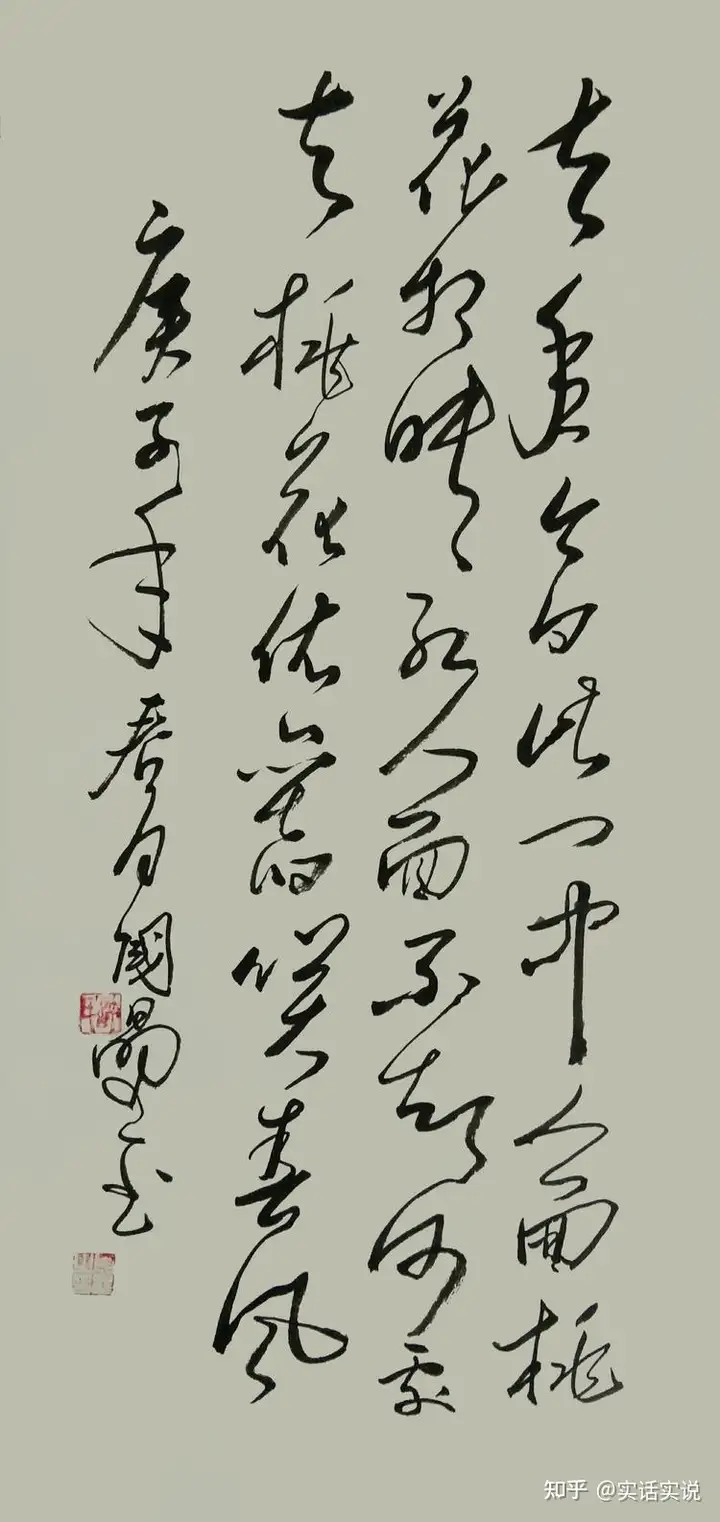 去年今日此门中人面桃
花相映红人面不知何处
去桃花依舊笑春风
庚子年春月國
知乎 @实话实说